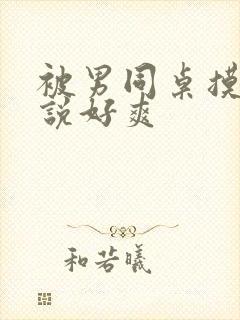 被男同桌摸
說好爽
和若曦